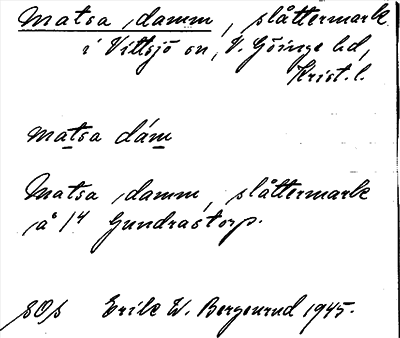 Matsa damm, slåttermark
i Vittsjö sn, V. Göinge hd,
Krist. l.
matsa dám
Matsa damm, slåttermark
å 14 Gundrastorp.
SOs Erik W. Bergenrud 1945.